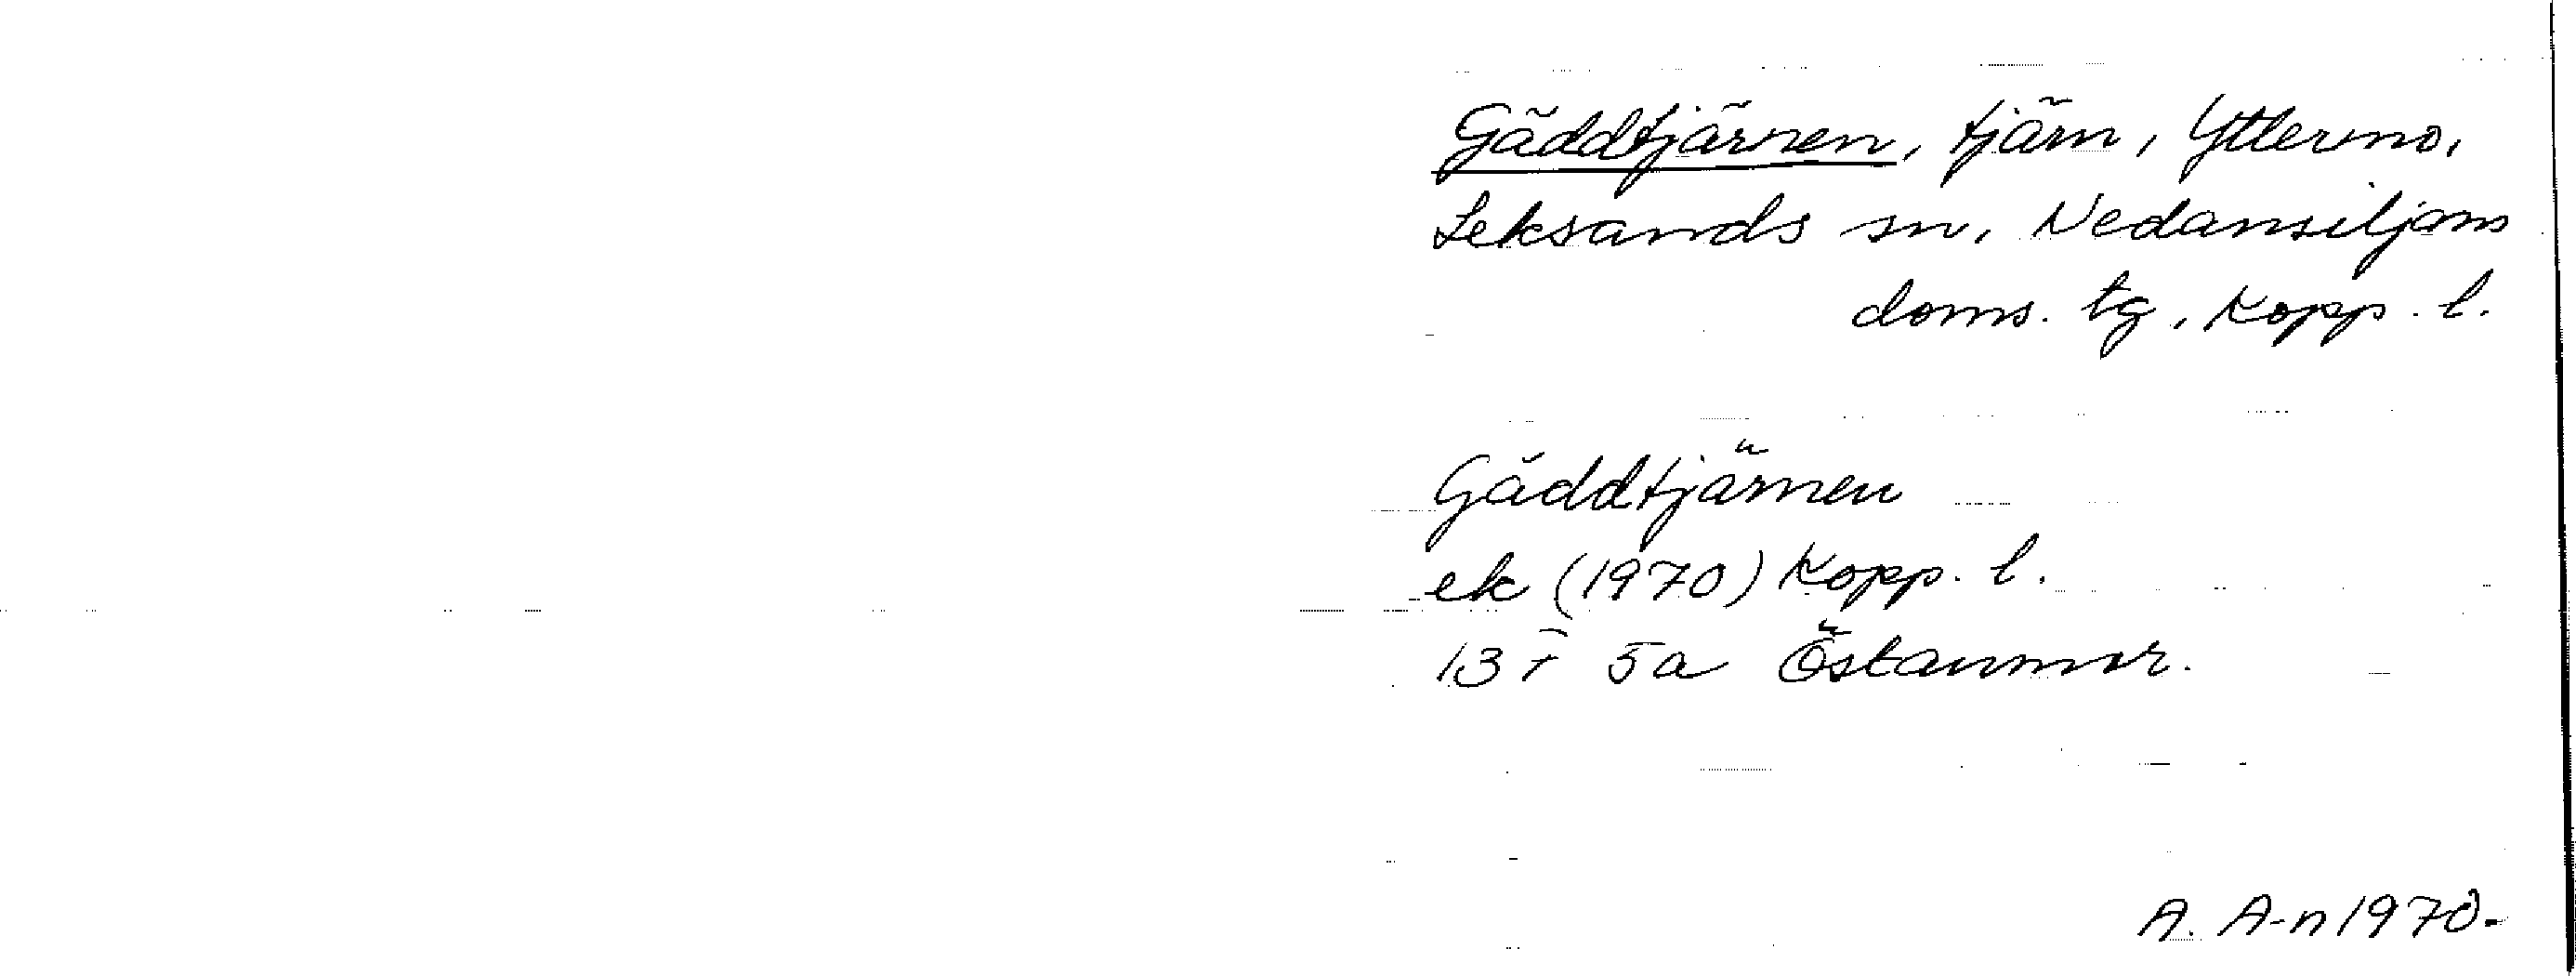 Gäddtjärnen, tjärn, Yttermo,
Leksands sn, Nedansiljans
doms. tg, Kopp. l.
Gäddtjärnen
ek (1970) Kopp. l.
13 F 5a Östanmor.
A. A-n 1970.